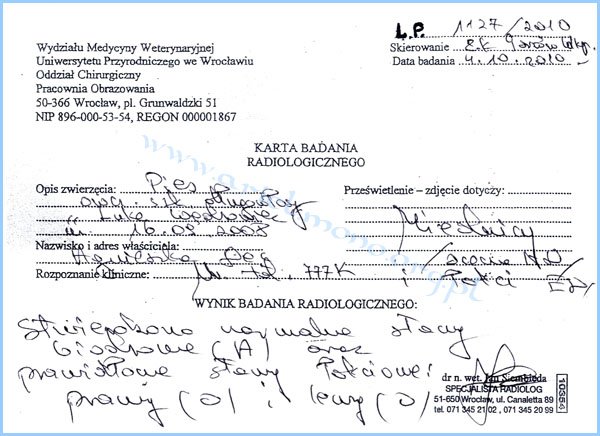 L.P. 1127/2010
Wydziału Medycyny Weterynaryjnej
Uniwersytetu Przyrodniczego we Wrocławiu
Oddział Chirurgiczny
Pracownia Obrazowania
50-366 Wrocław, pl. Grunwaldzki 51
NIP 896-000-53-54, REGON 000001867
Skierowanie
Data badania 4.10.2010
KARTA BADANIA
RADIOLOGICZNEGO
Opis zwierzęcia: Pies
owcz. szk. długowłosy
ur. 16.09.2008
Nazwisko i adres właściciela:
Rozpoznanie kliniczne: 777K
Prześwietlenie – zdjęcie dotyczy:
Miednicy
i łokci ED
WYNIK BADANIA RADIOLOGICZNEGO:
Stwierdzono normalne stawy
biodrowe (A) oraz
prawidłowe stawy łokciowe:
prawy (0) i lewy (0)
dr n. wet. Jan Siembieda
SPECJALISTA RADIOLOG
51-650 Wrocław, ul. Canaletta 89
tel. 071 345 21 02, 071 345 20 99
10354